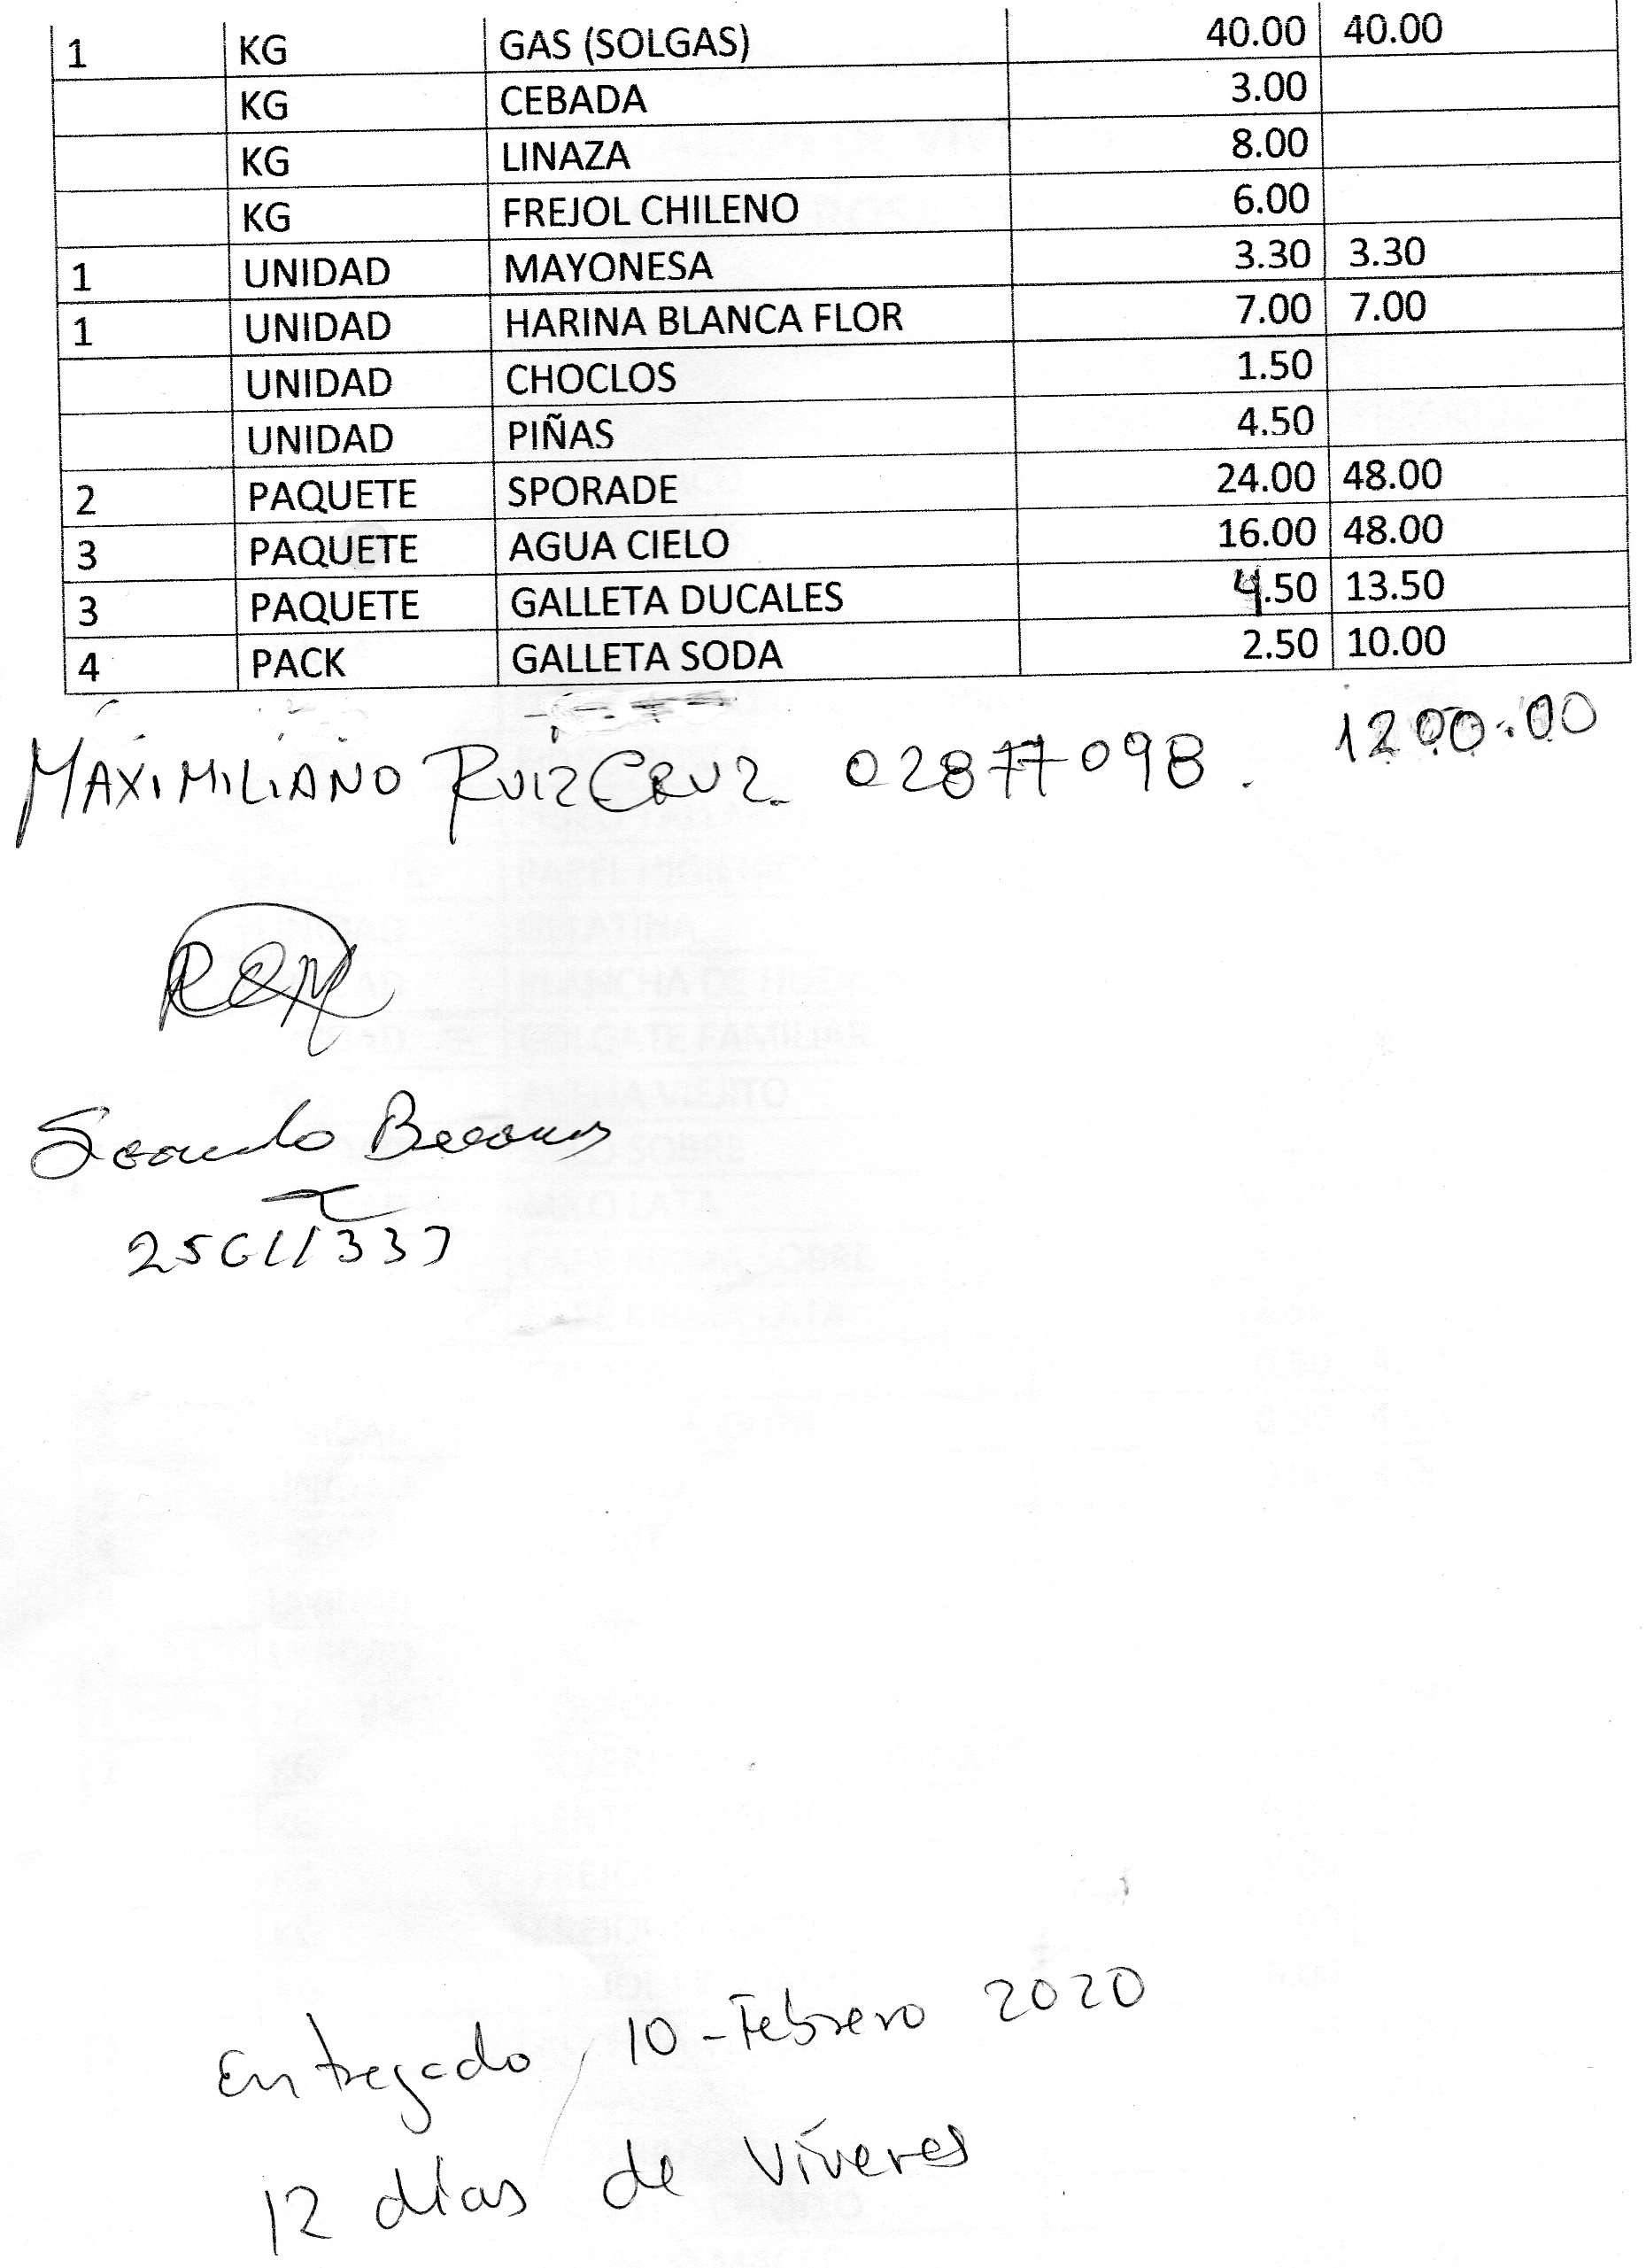 1 KG GAS (SOLGAS) 40.00 40.00
KG CEBADA 3.00
KG LINAZA 8.00
KG FREJOL CHILENO 6.00
1 UNIDAD MAYONESA 3.30 3.30
1 UNIDAD HARINA BLANCA FLOR 7.00 7.00
UNIDAD CHOCLOS 1.50
UNIDAD PIÑAS 4.50
2 PAQUETE SPORADE 24.00 48.00
3 PAQUETE AGUA CIELO 16.00 48.00
3 PAQUETE GALLETA DUCALES 4.50 13.50
4 PACK GALLETA SODA 2.50 10.00
1200.00
MAXIMILIANO RUIZ CRUZ 02877098.
Entregado, 10-Febrero 2020
12 días de Víveres